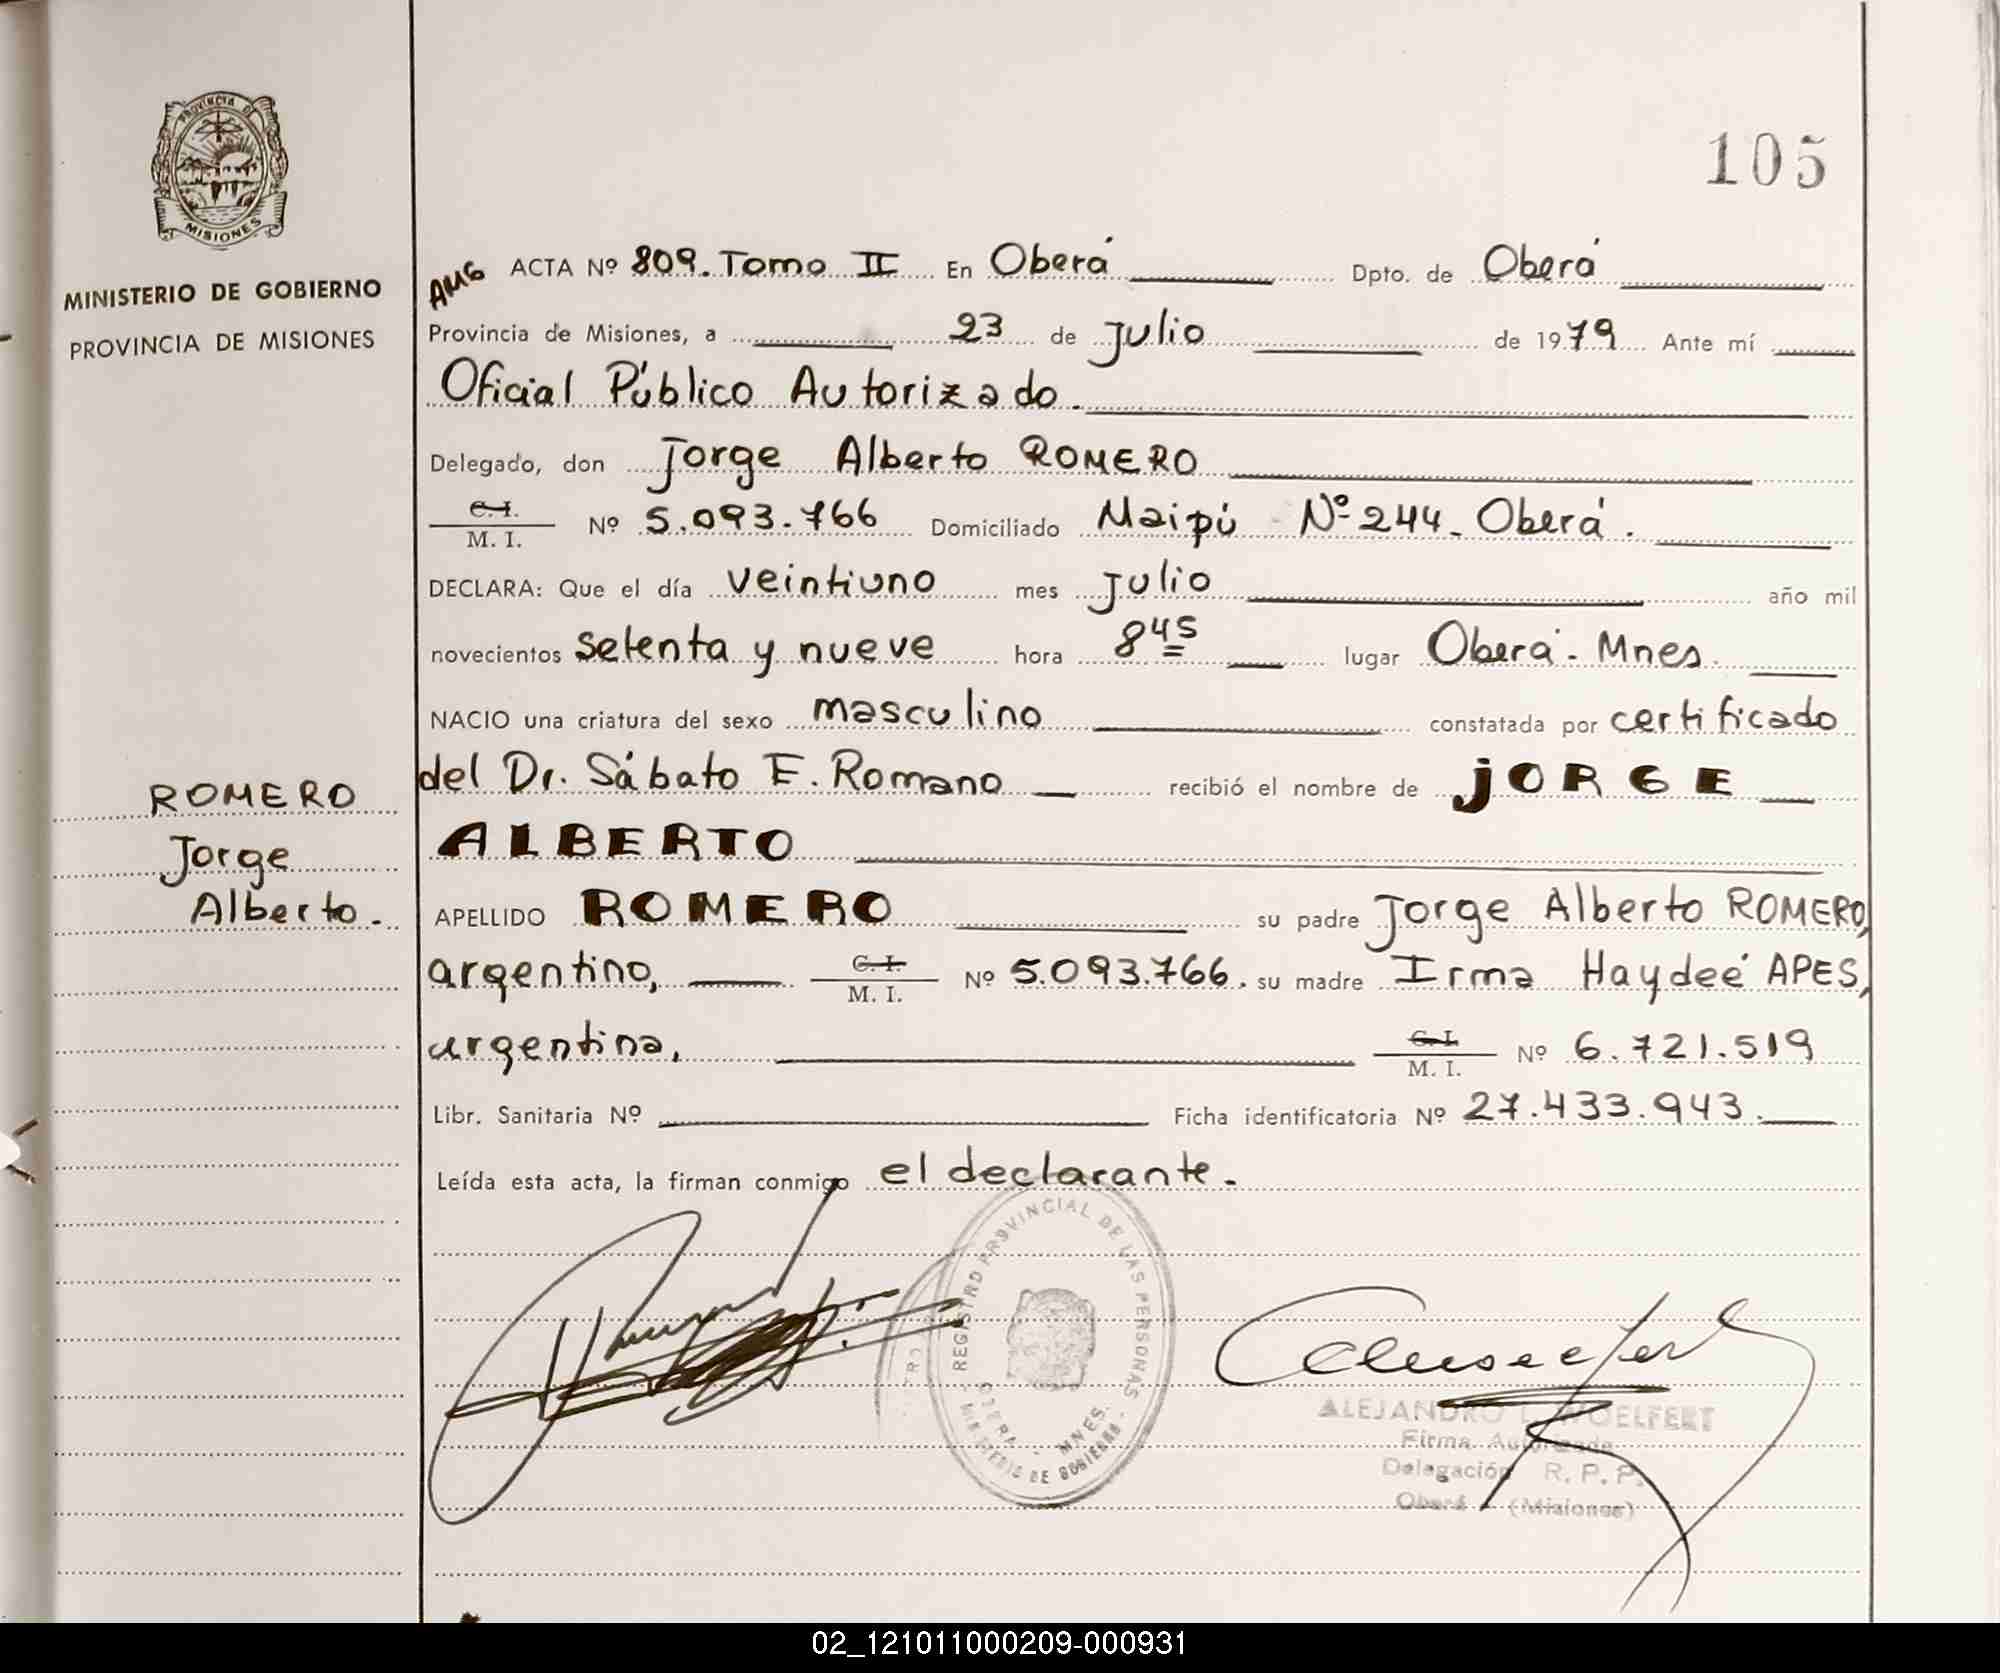 PROVINCIA DE
MISIONES
MINISTERIO DE GOBIERNO
PROVINCIA DE MISIONES
ROMERO
Jorge
Alberto.
105
AMG ACTA Nº 809. Tomo II En Oberá Dpto. de Oberá
Provincia de Misiones, a 23 de Julio de 1979 Ante mí
Oficial Público Autorizado.
Delegado, don Jorge Alberto ROMERO
C. I.
M. I. Nº 5.093.766 Domiciliado Maipú Nº 244. Oberá.
DECLARA: Que el día veintiuno mes Julio año mil
novecientos setenta y nueve hora 8 45 lugar Oberá. Mnes.
NACIO una criatura del sexo masculino constatada por certificado
del Dr. Sábato F. Romano recibió el nombre de JORGE
ALBERTO
APELLIDO ROMERO su padre Jorge Alberto ROMERO,
argentino, C. I.
M. I. Nº 5.093.766. su madre Irma Haydeé APES,
argentina, C. I.
M. I. Nº 6.721.519
Libr. Sanitaria Nº Ficha identificatoria Nº 27.433.943.
Leída esta acta, la firman conmigo el declarante.
REGISTRO PROVINCIAL DE LAS PERSONAS
OBERA - MNES.
MINISTERIO DE GOBIERNO
ALEJANDRO L. WOELFERT
Firma Autorizada
Delegación R. P. P.
Oberá (Misiones)
02_121011000209-000931